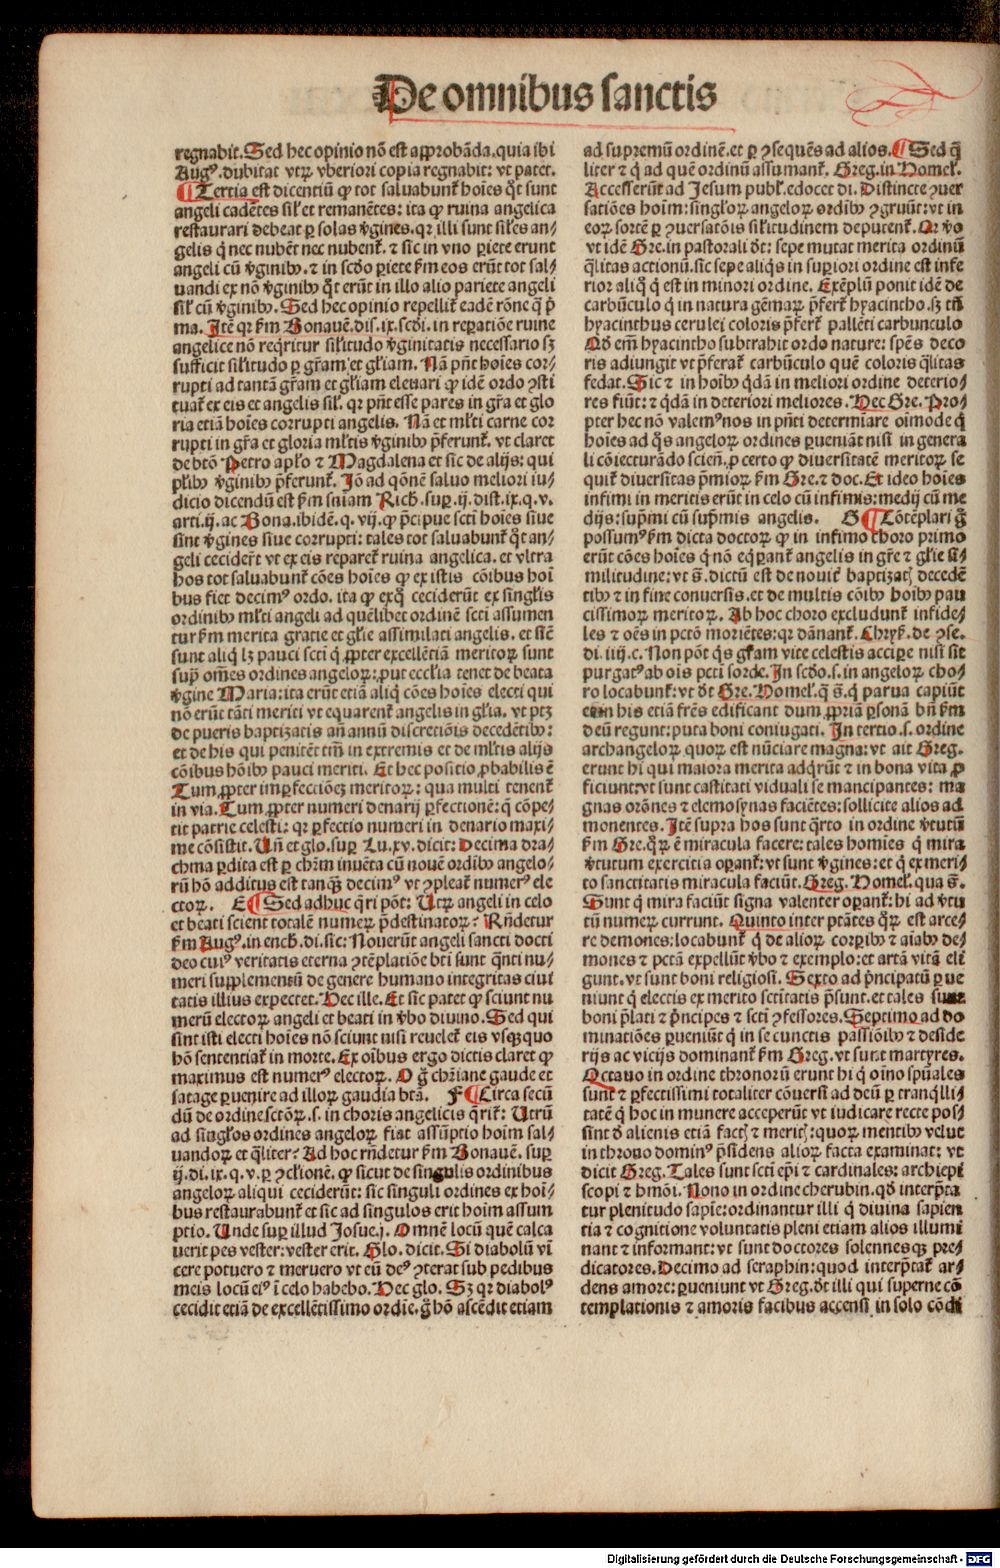 De omnibus sanctis
regnabit. Sed hec opinio nō est approbāda. quia ibi
Augꝰ. dubitat vtꝝ vberiori copia regnabit: vt patet.
¶ Tertia est dicentiū ꝙ tot saluabunt̉ hoīes qͦt sunt
angeli cadētes sil̉ et remanētes: ita ꝙ ruina angelica
restaurari debeat ꝑ solas v̉gines. qꝛ illi sunt sil̉es an⸗
gelis q̄ nec nubēt nec nubent̉. ⁊ sic in vno ꝑiete erunt
angeli cū v̉ginibꝰ. ⁊ in scd̄o ꝑiete ẜm eos erūt tot sal⸗
uandi ex nō v̉ginibꝰ qͦt erūt in illo alio pariete angeli
sil̉ cū v̉ginibꝰ. Sed hec opinio repellit̉ eadē rōne q̄ p̄
ma. Itē qꝛ ẜm Bonauē. dis. ix. scd̄i. in reparōe ruine
angelice nō req̄ritur sil̉itudo v̉ginitatis necessario sꝫ
sufficit sil̉itudo ꝑ gr̄am et gl̄iam. Nā pn̄t hoīes cor⸗
rupti ad tantā gr̄am et gl̄iam eleuari ꝙ idē ordo ꝯsti
tuat̉ ex eis et angelis sil̉. qꝛ pn̄t esse pares in gr̄a et glo
ria etiā hoīes corrupti angelis. Nā et ml̄ti carne cor
rupti in gr̄a et gloria ml̄tis v̉ginibꝰ p̄ferunt̉. vt claret
de btō Petro apl̄o ⁊ Magdalena et sic de alijs: qui
pl̄ibꝰ v̉ginibꝰ p̄ferunt̉. Iō ad qōnē saluo meliori iu⸗
dicio dicendū est ẜm sn̄iam Rich. suꝑ. ij. dist. ix. q. v.
arti. ij. ac Bona. ibidē. q. vij. ꝙ p̄cipue scti hoīes siue
sint v̉gines siue corrupti: tales tot saluabunt̉ qͦt an⸗
geli cecider̄t vt ex eis reparet̉ ruina angelica. et vltra
hos tot saluabunt̉ cōes hoīes ꝙ ex istis cōibus hoī
bus fiet decimꝰ ordo. ita ꝙ exq̄ ceciderūt ex singl̄is
ordinibꝰ ml̄ti angeli ad quēlibet ordinē scti assumen
tur ẜm merita gratie et gl̄ie assimilati angelis. et sic̄
sunt aliq̄ lꝫ pauci scti q̄ ꝓpter excellētiā meritoꝝ sunt
suꝑ om̄es ordines angeloꝝ: put eccl̄ia tenet de beata
v̉gine Maria: ita erūt etiā aliq̄ cōes hoīes electi qui
nō erūt tāti meriti vt equarent̉ angelis in gl̄ia. vt ptꝫ
de pueris baptizatis an̄ annū discretiōis decedētibꝰ:
et de his qui penitēt tm̄ in extremis et de ml̄tis alijs
cōibus hōibꝰ pauci meriti. Et hec positio ꝓbabilis ē
Tum ꝓpter imꝑfectiōeꝫ meritoꝝ: qua multi tenent̉
in via. Tum ꝓpter numeri denarij ꝑfectionē: q̄ cōpe⸗
tit patrie celesti: qꝛ ꝑfectio numeri in denario maxi⸗
me cōsistit. Un̄ et glo. suꝑ Lu. xv. dicit: Decima dra⸗
chma ꝑdita est ꝑ chr̄m inuēta cū nouē ordibꝰ angelo⸗
rū hō additus est tanq̄ decimꝰ vt ꝯpleat̉ numerꝰ ele
ctoꝝ. E ¶ Sed adhuc q̄ri pōt: Utꝝ angeli in celo
et beati scient totalē numeꝝ p̄destinatoꝝ? Rn̄detur
ẜm Augꝰ. in ench. di. sic: Nouerūt angeli sancti docti
deo cuiꝰ veritatis eterna ꝯtēplatiōe bti sunt q̄nti nu⸗
meri supplementū de genere humano integritas ciui
tatis illius expectet. Hec ille. Et sic patet ꝙ sciunt nu
merū electoꝝ angeli et beati in v̉bo diuino. Sed qui
sint isti electi hoīes nō sciunt nisi reuelet̉ eis vsqꝫ quo
hō sententiat̉ in morte. Ex oībus ergo dictis claret ꝙ
maximus est numerꝰ electoꝝ. O g̊ chr̄iane gaude et
satage ꝑuenire ad illoꝝ gaudia btā. F ¶ Circa secū
dū de ordine sctōꝝ. s. in choris angelicis q̄rit̉: Utrū
ad sīgl̄os ordines angeloꝝ fiat assūptio hoīm sal⸗
uandoꝝ et qͣliter? Ad hoc rn̄detur ẜm Bonauē. suꝑ
ij. di. ix. q. v. ꝑ ꝯclionē. ꝙ sicut de singulis ordinibus
angeloꝝ aliqui ceciderūt: sic singuli ordines ex hoī⸗
bus restaurabunt̉ et sic ad singulos erit hoīm assum
ptio. Unde suꝑ illud Josue. j. Omnē locū quē calca
uerit pes vester: vester erit. Glo. dicit. Si diabolū vī
cere potuero ⁊ meruero vt eū deꝰ ꝯterat sub pedibus
meis locū eiꝰ ī celo habebo. Hec glo. Sꝫ qꝛ diabolꝰ
cecidit etiā de excellētissimo ordīe. g̊ hō ascēdit etiam
ad supremū ordinē. et ꝑ ꝯsequēs ad alios. ¶ Sed qͣ
liter ⁊ q̄ ad quē ordinū assumant̉. Greg. in Homel̉.
Accesserūt ad Jesum publ̉. edocet di. Distincte ꝯuer
satiōes hoīm: singl̄oꝝ angeloꝝ ordībꝰ ꝯgruūt: vt in
eoꝝ sortē ꝑ ꝯuersatōis sil̉itudinem deputent̉. Qꝛ v̊o
vt idē Gre. in pastorali d̄t: sepe mutat merita ordinū
q̄litas actionū. sic sepe aliq̄s in suꝑiori ordine est infe
rior aliq̄ q̄ est in minori ordine. Exēplū ponit idē de
carbūculo q̄ in natura gēmaꝝ p̄fert̉ hyacincho. sꝫ tn̄
hyacinthus cerulei coloris p̄fert̉ pallēti carbunculo
Qd̄ em̄ hyacincho subtrahit ordo nature: spēs deco
ris adiungit vt p̄ferat̉ carbūculo quē coloris q̄litas
fedat. Sic ⁊ in hoībꝰ q̄dā in meliori ordine deterio⸗
res fiūt: ⁊ q̄dā in deteriori meliores. Hec Gre. Pro⸗
pter hec nō valemꝰ nos in pn̄ti determīare oīmode q̄
hoīes ad q̄s angeloꝝ ordines ꝑueniāt nisi in genera
li cōiecturādo scien. ꝓ certo ꝙ diuersitatē meritoꝝ se
quit̉ diuersitas p̄mioꝝ ẜm Gre. ⁊ doc. Et ideo hoīes
infimi in meritis erūt in celo cū infimis: medij cū me
dijs: sup̄mi cū sup̄mis angelis. G ¶ Cōtēplari g̊
possumꝰ ẜm dicta doctoꝝ ꝙ in infimo choro primo
erūt cōes hoīes q̄ nō eq̄parant̉ angelis in gr̄e ⁊ gl̄ie si⸗
militudine: vt s̄. dictū est de nouit̉ baptizatꝭ decedē
tibꝰ ⁊ in fine conuersis. et de multis cōibꝰ hoībꝰ pau
cissimoꝝ meritoꝝ. Ab hoc choro excludunt̉ infide⸗
les ⁊ oēs in pctō moriētes: qꝛ dānant̉. Chrys̉. de ꝯse.
di. iiij. c. Non pōt q̄s gr̄am vite celestis accipe nisi sit
purgatꝰ ab oīs pcti sorde. In scd̄o. s. in angeloꝝ cho⸗
ro locabunt̉: vt d̄t Gre. Homel̉. q̄ s̄. q̄ parua capiūt
⁊ in his etiā fr̄es edificant dum ꝓpriā ꝑsonā bn̄ ẜm
deū regunt: puta boni coniugati. In tertio. s. ordine
archangeloꝝ quoꝝ est nūciare magna: vt ait Greg.
erunt hi qui maiora merita adq̄rūt ⁊ in bona vita ꝓ
ficiunt: vt sunt castitati viduali se mancipantes: ma
gnas orōnes ⁊ elemosynas faciētes: sollicite alios ad
monentes. Itē supra hos sunt q̄rto in ordine v̉tutū
ẜm Gre. qͦꝝ ē miracula facere: tales homīes q̄ mira
v̉tutum exercitia oꝑant̉: vt sunt v̉gines: et q̄ ex meri⸗
to sanctitatis miracula faciūt. Greg. Homel̉. qua s̄.
Sunt q̄ mira faciūt signa valenter oꝑant̉: hi ad v̉tu
tū numeꝝ currunt. Quinto inter p̄tātes qͦꝝ est arce⸗
re demones: locabunt̉ q̄ de alioꝝ corꝑibꝰ ⁊ aīabꝰ de⸗
mones ⁊ pctā expellūt v̉bo ⁊ exemplo: et artā vitā eli
gunt. vt sunt boni religiosi. Sexto ad p̄ncipatū ꝑue
niunt q̄ electis ex merito sctitatis p̄sunt. et tales sunt
boni p̄lati ⁊ p̄ncipes ⁊ scti ꝯfessores. Septimo ad do
minatiōes ꝑueniūt q̄ in se cunctis passiōibꝰ ⁊ deside
rijs ac vicijs dominant̉ ẜm Greg. vt sunt martyres.
Octauo in ordine thronorū erunt hi q̄ oīno spūales
sunt ⁊ ꝑfectissimi totaliter cōuersi ad deū ꝑ tranq̄lli⸗
tatē q̄ hoc in munere acceperūt vt iudicare recte pos⸗
sint d̄ alienis etiā factꝭ ⁊ meritꝭ: quoꝝ mentibꝰ velut
in throno dominꝰ p̄sidens alioꝝ facta examinat: vt
dicit Greg. Tales sunt scti ep̄i ⁊ cardinales: archiepi
scopi ⁊ hmōi. Nono in ordine cherubin. qd̄ interp̄ta
tur plenitudo sapīe: ordinantur illi q̄ diuina sapien
tia ⁊ cognitione voluntatis pleni etiam alios illumi
nant ⁊ informant: vt sunt doctores solennesqꝫ pre⸗
dicatores. Decimo ad seraphin: quod interp̄tat̉ ar⸗
dens amore: ꝑueniunt vt Greg. d̄t illi qui superne cō
templationis ⁊ amoris facibus accensi in solo cōdi
Digitalisierung gefördert durch die Deutsche Forschungsgemeinschaft - DFG